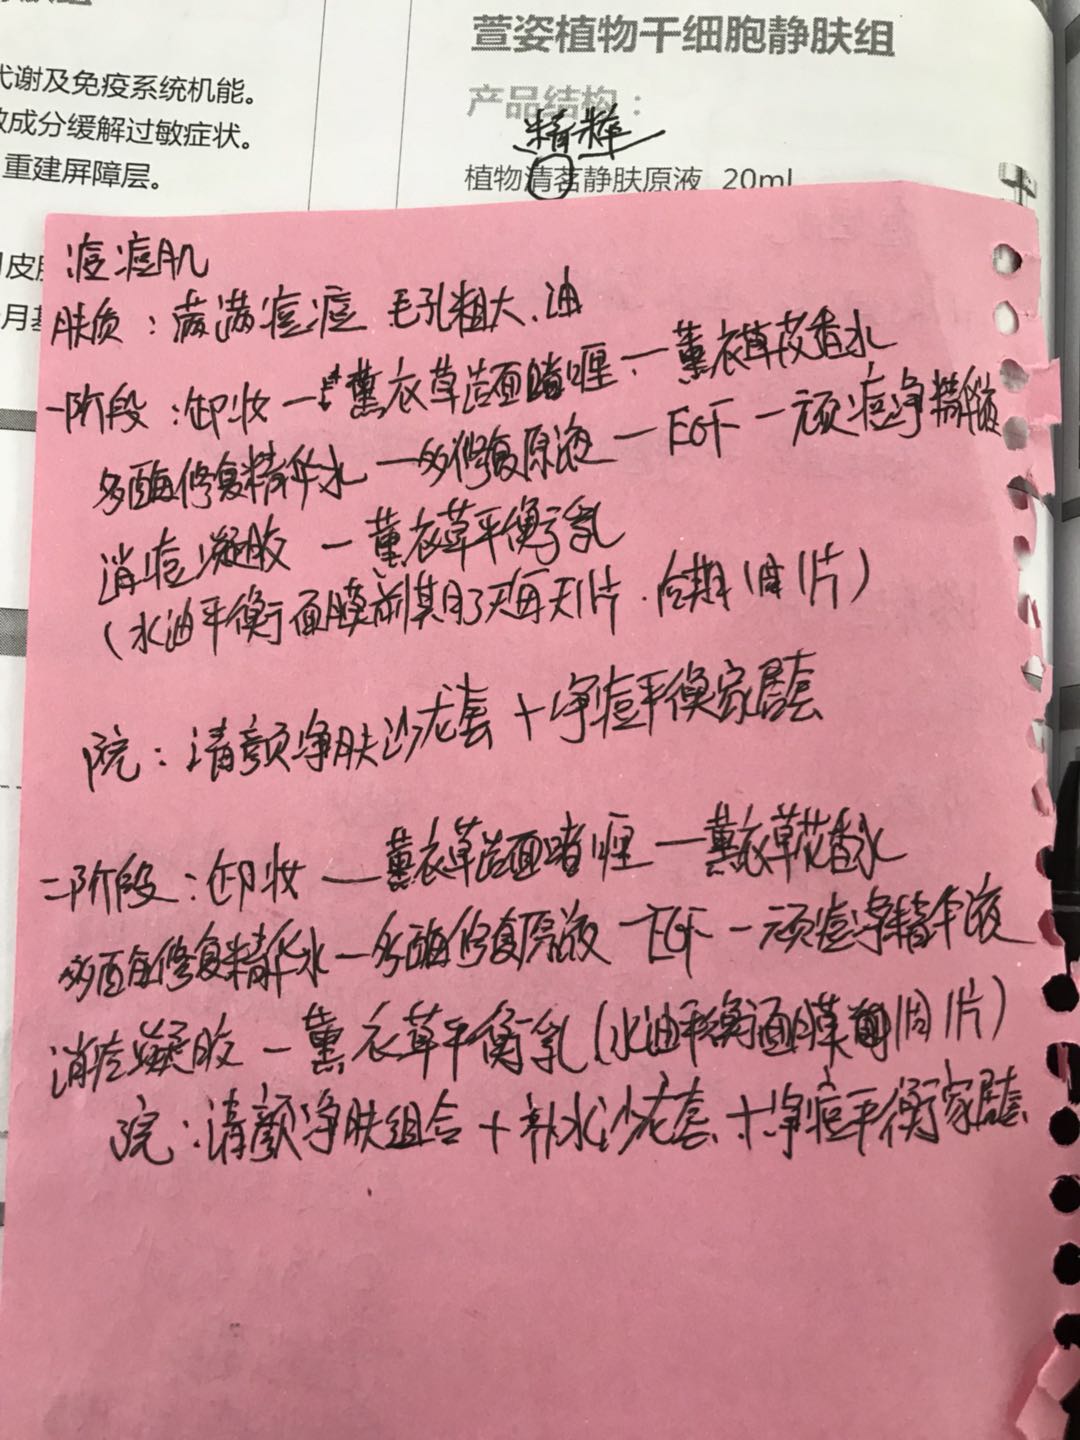 萱姿植物干细胞静肤组
代谢及免疫系统机能。
产品结构：
成分缓解过敏症状。
精粹
重建屏障层。
植物清茗静肤原液 20ml
痘痘肌
肤质：满满痘痘 毛孔粗大.油
一阶段：卸妆—薰衣草洁面啫喱—薰衣草花香水
多酶修复精华水—多修复原液—EGF—顽痘净精华液
消痘凝胶—薰衣草平衡乳
(水油平衡面膜前其月了天每天1片.后期1周1片)
院：清颜净肤沙龙套+净痘平衡家居套
二阶段：卸妆—薰衣草洁面啫喱—薰衣草花香水
多酶修复精华水—多酶修复原液—EGF—顽痘净精华液
消痘凝胶—薰衣草平衡乳(水油平衡面膜1周1片)
院：清颜净肤组合+补水沙龙套+净痘平衡家居套